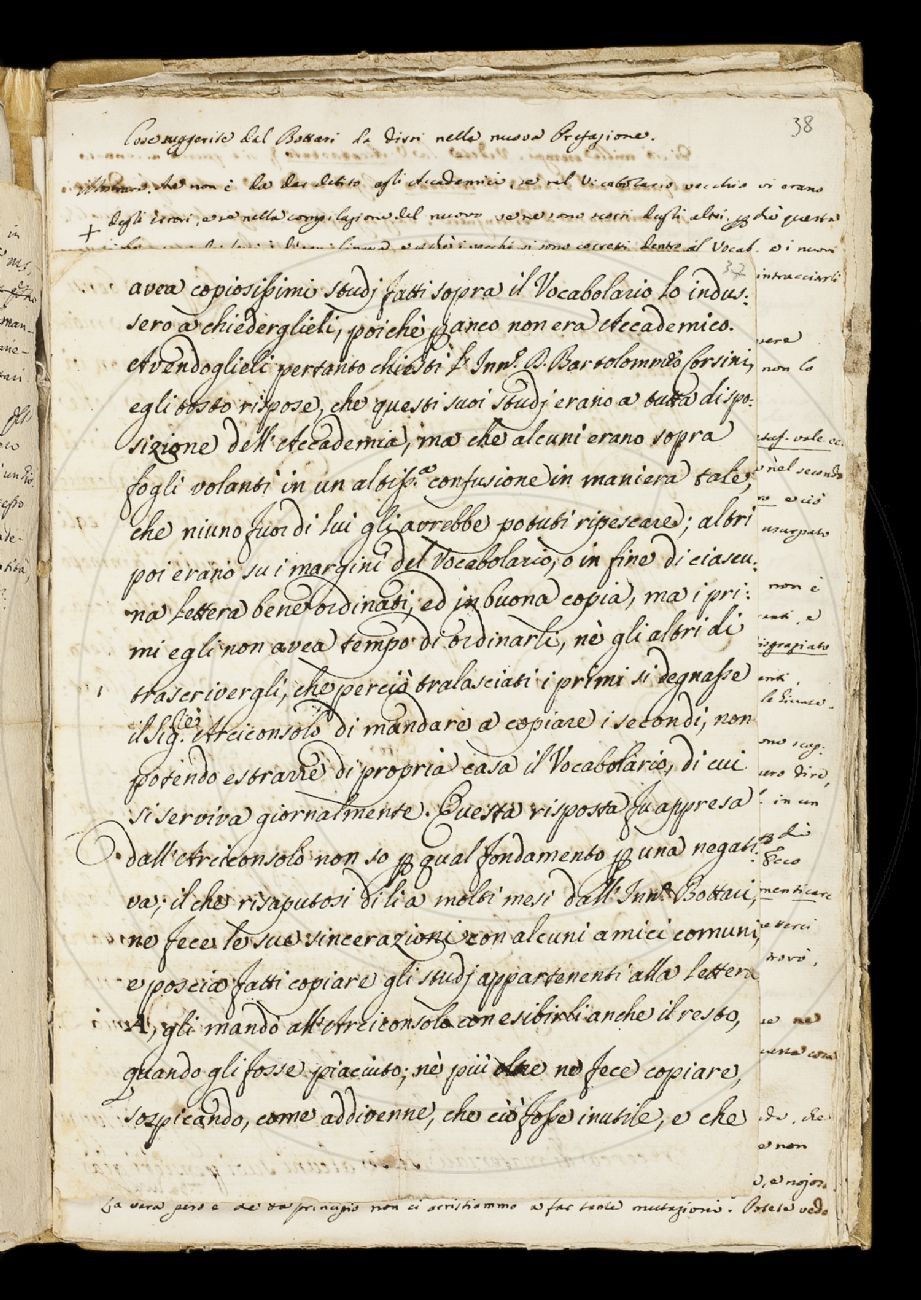 38
Cose suggerite dal Bottari da dirsi nella nuova Prefazione.
che non è da dar debito agli Accademici, se nel Vocabolario vecchio vi erano
+ degli errori, e se nella compilazione del nuovo se ne sono scorsi degli altri. per che questa
dentro al Vocab. e i nuovi
37
avea copiosissimi studj fatti sopra il Vocabolario lo indus:
sero a chiederglieli, poichè per anco non era Accademico.
Avendoglieli pertanto chiesti l'Inn.º P. Bartolommeo Corsini,
egli tosto rispose, che questi suoi studj erano a tutta dispo-
sizione dell'Accademia, ma che alcuni erano sopra
fogli volanti in un altiss.ª confusione in maniera tale,
che niuno fuor di lui gli avrebbe potuti ripescare; altri
poi erano su i margini del Vocabolario, o in fine di ciascu:
na Lettera bene ordinati, ed in buona copia, ma i pri:
mi egli non avea tempo di ordinarli, nè gli altri di
trascrivergli, che perciò tralasciati i primi si degnasse
il Sig.re Arciconsolo di mandare a copiare i secondi, non
potendo estrarre di propria casa il Vocabolario, di cui
si serviva giornalmente. Questa risposta fu appresa
dall'Arciconsolo non so per qual fondamento per una negati:
va; il che risaputosi di lì a molti mesi dall'Inn.º Bottari,
ne fece le sue sincerazioni con alcuni amici comuni,
e poscia fatti copiare gli studj appartenenti alla Lettera
A, gli mandò all'Arciconsolo con esibirli anche il resto,
quando gli fosse piaciuto; nè più ne fece copiare,
sospicando, come addivenne, che ciò fosse inutile, e che
intracciarli
non lo
vale
nel secondo
e ciò
usurpato
non è
in un
Ecco
trovò,
che
e non
La vera però è che da principio non ci arristiammo a far tante mutazioni. Potete vede